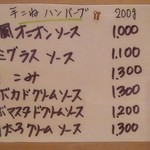 手こねハンバーグ 200g
風オニオンソース 1,000
ミグラスソース 1,100
こみ 1,300
ボカドクリームソース 1,300
ボマスタドクリームソース 1,200
明太子クリームソース 1,300